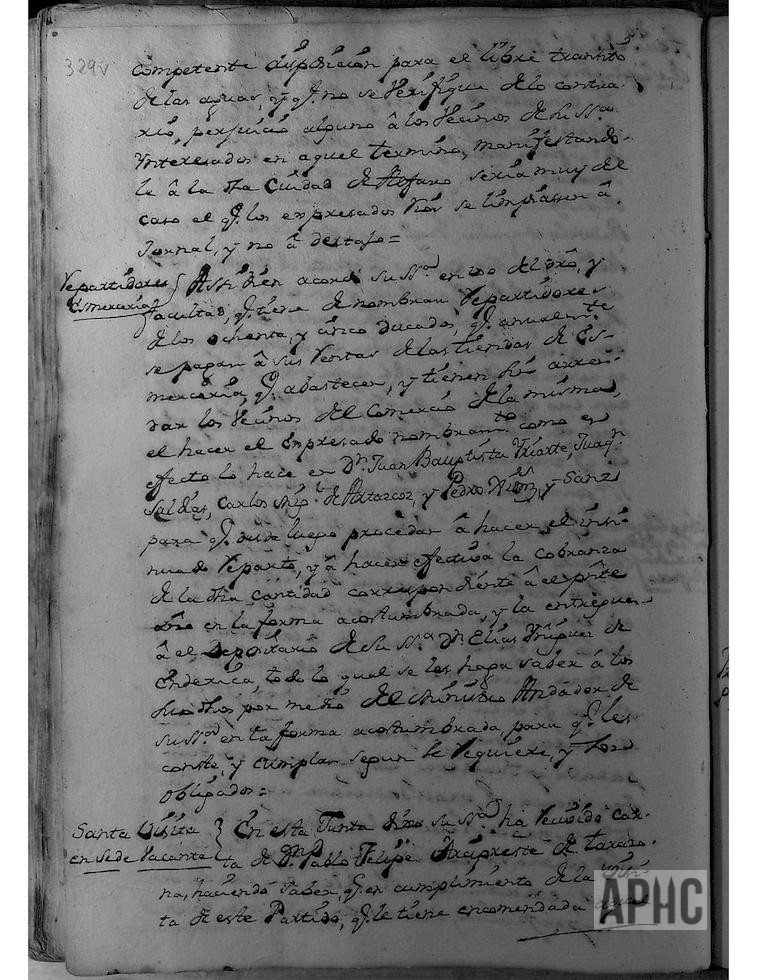 329v
competente disposicion para el libre transito
de las aguas, y q.e no se verifique de lo contra-
rio, perjuicio alguno â los vecinos de su S.ria
Ynteresados en aquel termino, manifestando-
le â la dha Ciudad de Alfaro seria muy del
caso el q.e los expresados Rios se limpiassen â
Jornal, y no â destajo=
Repartidores
Esmerceria
Assi bien acordo su S.ria en uso del dro, y
facultad, q.e tiene de nombrar Repartidores
de los ochenta, y cinco ducados, q.e anualm.te
se pagan â sus Rentas de las tiendas de Es-
merceria, q.e abastecen, y tienen
dar los Vecinos del Comercio de la misma,
el hacer el expresado nombram.to como en
efecto lo hace en D.n Juan Bauptista Yriarte, Juaq.n
Saldias, Carlos Mig.l de Artazcoz, y Pedro y Sanz
para q.e desde luego procedan â hacer el insi-
nuado Reparto, y â hacer efectiva la cobranza
de la dha cantidad correspondiente â el pnte
año en la forma acostumbrada, y la entreguen
â el Depositario de su S.ria D.n Elias Yñiguez de
todo lo qual se les haga saber â los
suso dhos por medio del Ministro Andador de
su S.ria en la forma acostumbrada, para q.e les
conste, y cumplan segun se requiere, y son
obligados=
Santa Visita
en Sede Vacante
En esta Junta dixo su S.ria ha recivido car-
ta de D.n Pablo Felipe Arcipreste de Taraza-
na, haciendo saber, q.e en cumplimiento de la Visi-
ta de este Partido, q.e le tiene encomendada
APHC